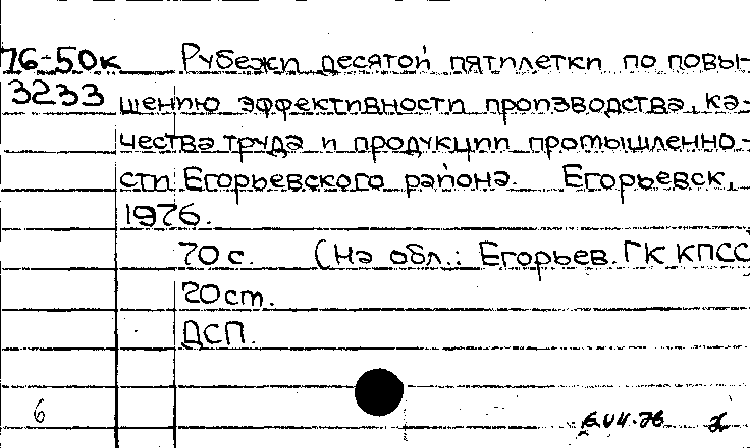 76-50к Рубежи десятой пятилетки по повы-
3233 шению эффективности производства, ка-
чества труда и продукции промышленно-
сти Егорьевского района. Егорьевск,
1976.
70 с. (На обл.: Егорьев. ГК КПСС
20 ст.
ДСП.
6